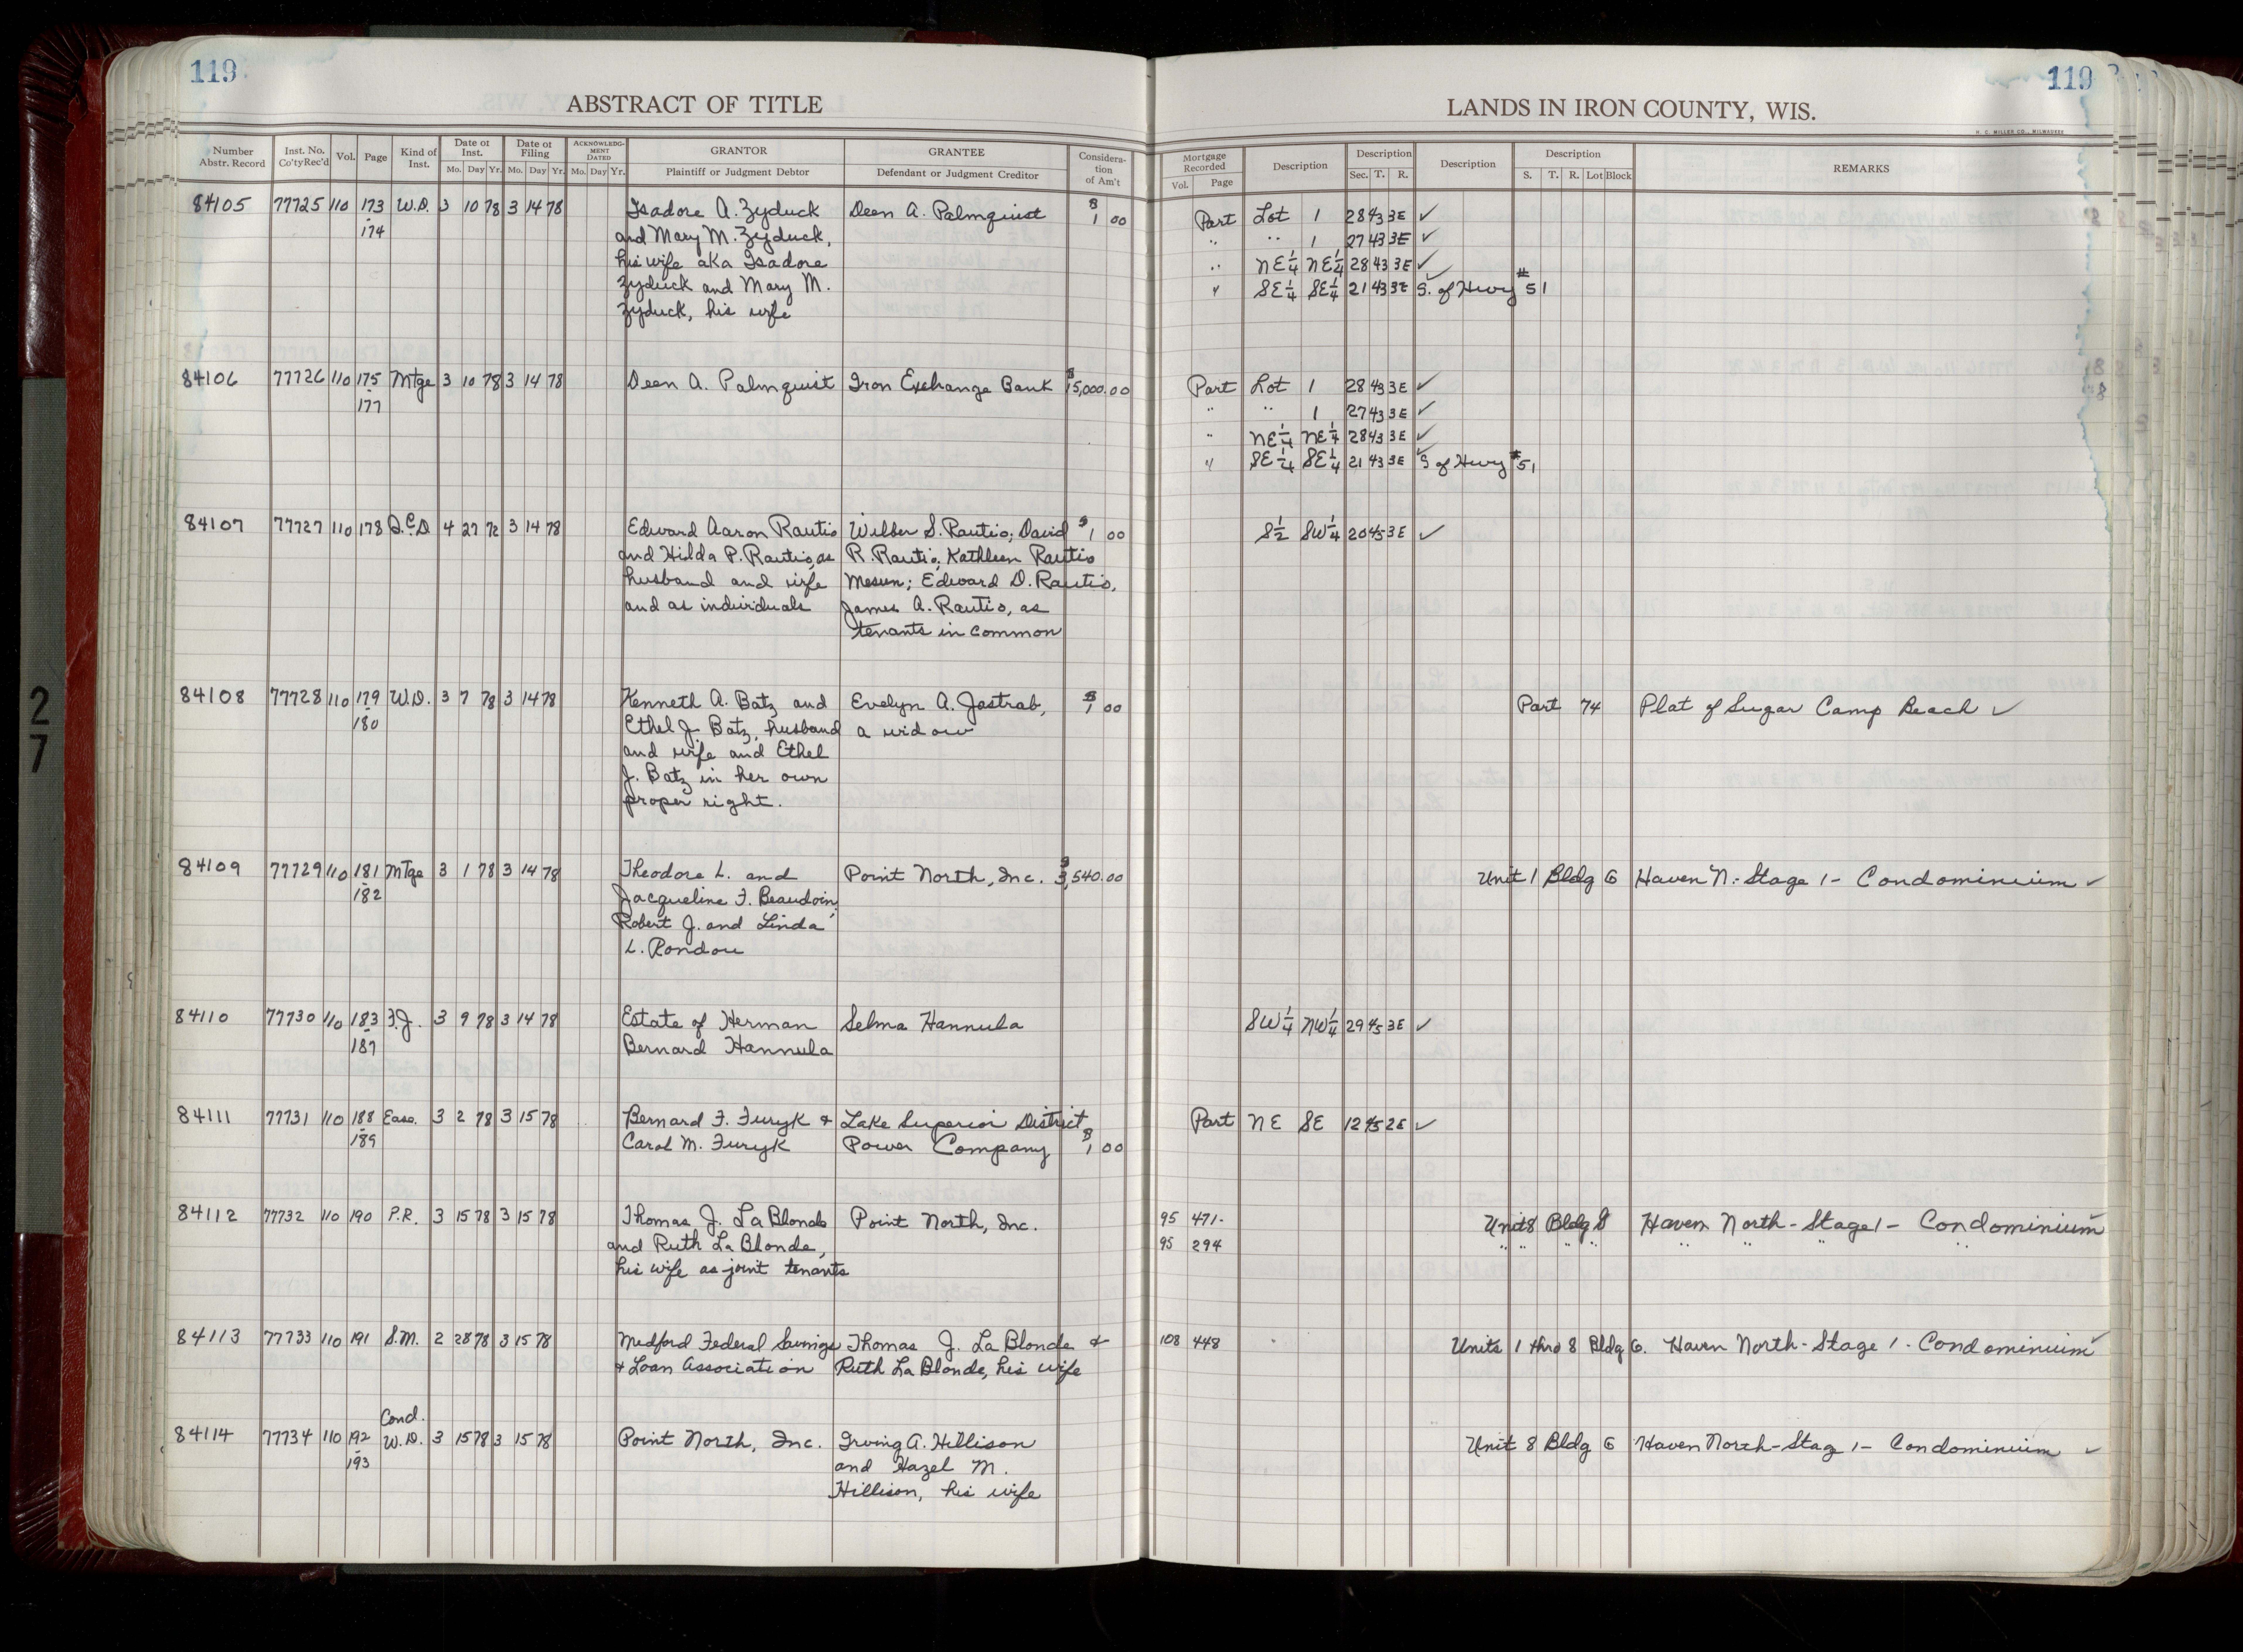 119
119
ABSTRACT OF TITLE
LANDS IN IRON COUNTY, WIS.
H. C. MILLER CO., MILWAUKEE
Number Abstr. Record Inst. No. Co'ty Rec'd Vol. Page Kind of Inst. Date of Inst. Mo. Day Yr. Date of Filing Mo. Day Yr. ACKNOWLEDGMENT DATED Mo. Day Yr. GRANTOR Plaintiff or Judgment Debtor GRANTEE Defendant or Judgment Creditor Consideration of Am't
Mortgage Recorded Vol. Page Description Description Sec. T. R. Description Description S. T. R. Lot Block REMARKS
84105 77725 110 173 W.D. 3 10 78 3 14 78 Isadore A. Zyduck Deen A. Palmquist $1 00 Part Lot 1 28 43 3E ✓
- 174 and Mary M. Zyduck, " " 1 27 43 3E ✓
his wife aka Isadore " NE¼ NE¼ 28 43 3E ✓
Zyduck and Mary M. " SE¼ SE¼ 21 43 3E S. of Hwy #51 ✓
Zyduck, his wife
84106 77726 110 175 Mtge 3 10 78 3 14 78 Deen A. Palmquist Iron Exchange Bank $15,000.00 Part Lot 1 28 43 3E ✓
- 177 " " 1 27 43 3E ✓
" NE¼ NE¼ 28 43 3E ✓
" SE¼ SE¼ 21 43 3E S of Hwy #51 ✓
84107 77727 110 178 Q.C.D. 4 27 72 3 14 78 Edward Aaron Rautio Wilber S. Rautio; David $1 00 S½ SW¼ 20 45 3E ✓
and Hilda P. Rautio, as R. Rautio; Kathleen Rautio
husband and wife Mesun; Edward D. Rautio,
and as individuals James A. Rautio, as
tenants in common
84108 77728 110 179 W.D. 3 7 78 3 14 78 Kenneth A. Batz and Evelyn A. Jastrab, $1 00 Part 74 Plat of Sugar Camp Beach ✓
- 180 Ethel J. Batz, husband a widow
and wife and Ethel
J. Batz in her own
proper right.
84109 77729 110 181 Mtge 3 1 78 3 14 78 Theodore L. and Point North, Inc. $3,540.00 Unit 1 Bldg G Haven N.-Stage 1- Condominium ✓
- 182 Jacqueline F. Beaudoin,
Robert J. and Linda
L. Rondou
84110 77730 110 183 F.J. 3 9 78 3 14 78 Estate of Herman Selma Hannula SW¼ NW¼ 29 45 3E ✓
- 187 Bernard Hannula
84111 77731 110 188 Ease. 3 2 78 3 15 78 Bernard F. Furyk & Lake Superior District Part NE SE 12 45 2E ✓
- 189 Carol M. Furyk Power Company $1 00
84112 77732 110 190 P.R. 3 15 78 3 15 78 Thomas J. La Blonde Point North, Inc. 95 471- Unit 8 Bldg G Haven North-Stage 1- Condominium ✓
and Ruth La Blonde, 95 294 " " " " " " " "
his wife as joint tenants
84113 77733 110 191 S.M. 2 28 78 3 15 78 Medford Federal Savings Thomas J. La Blonde & 108 448 Units 1 thro 8 Bldg G. Haven North-Stage 1 - Condominium ✓
& Loan Association Ruth La Blonde, his wife
Cond.
84114 77734 110 192 W.D. 3 15 78 3 15 78 Point North, Inc. Irving A. Hillison Unit 8 Bldg G Haven North-Stag 1- Condominium ✓
- 193 and Hazel M.
Hillison, his wife
27